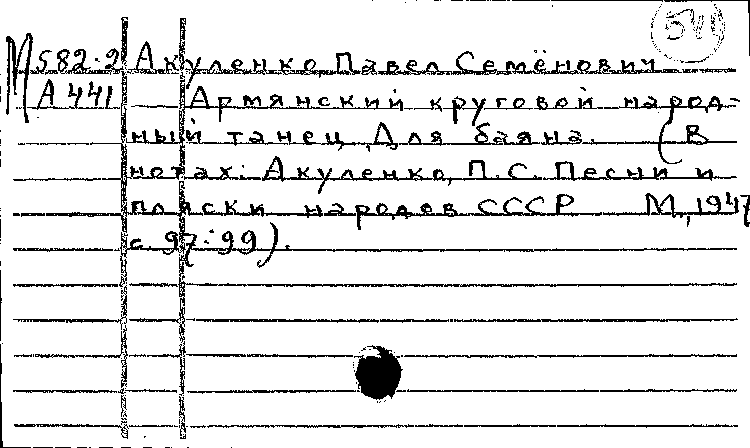 М 582.2 Акуленко, Павел Семёнович
А 441 Армянский круговой народ-
ный танец. Для баяна. (В
нотах: Акуленко, П.С. Песни и
пляски народов СССР М., 1947
с. 97-99).